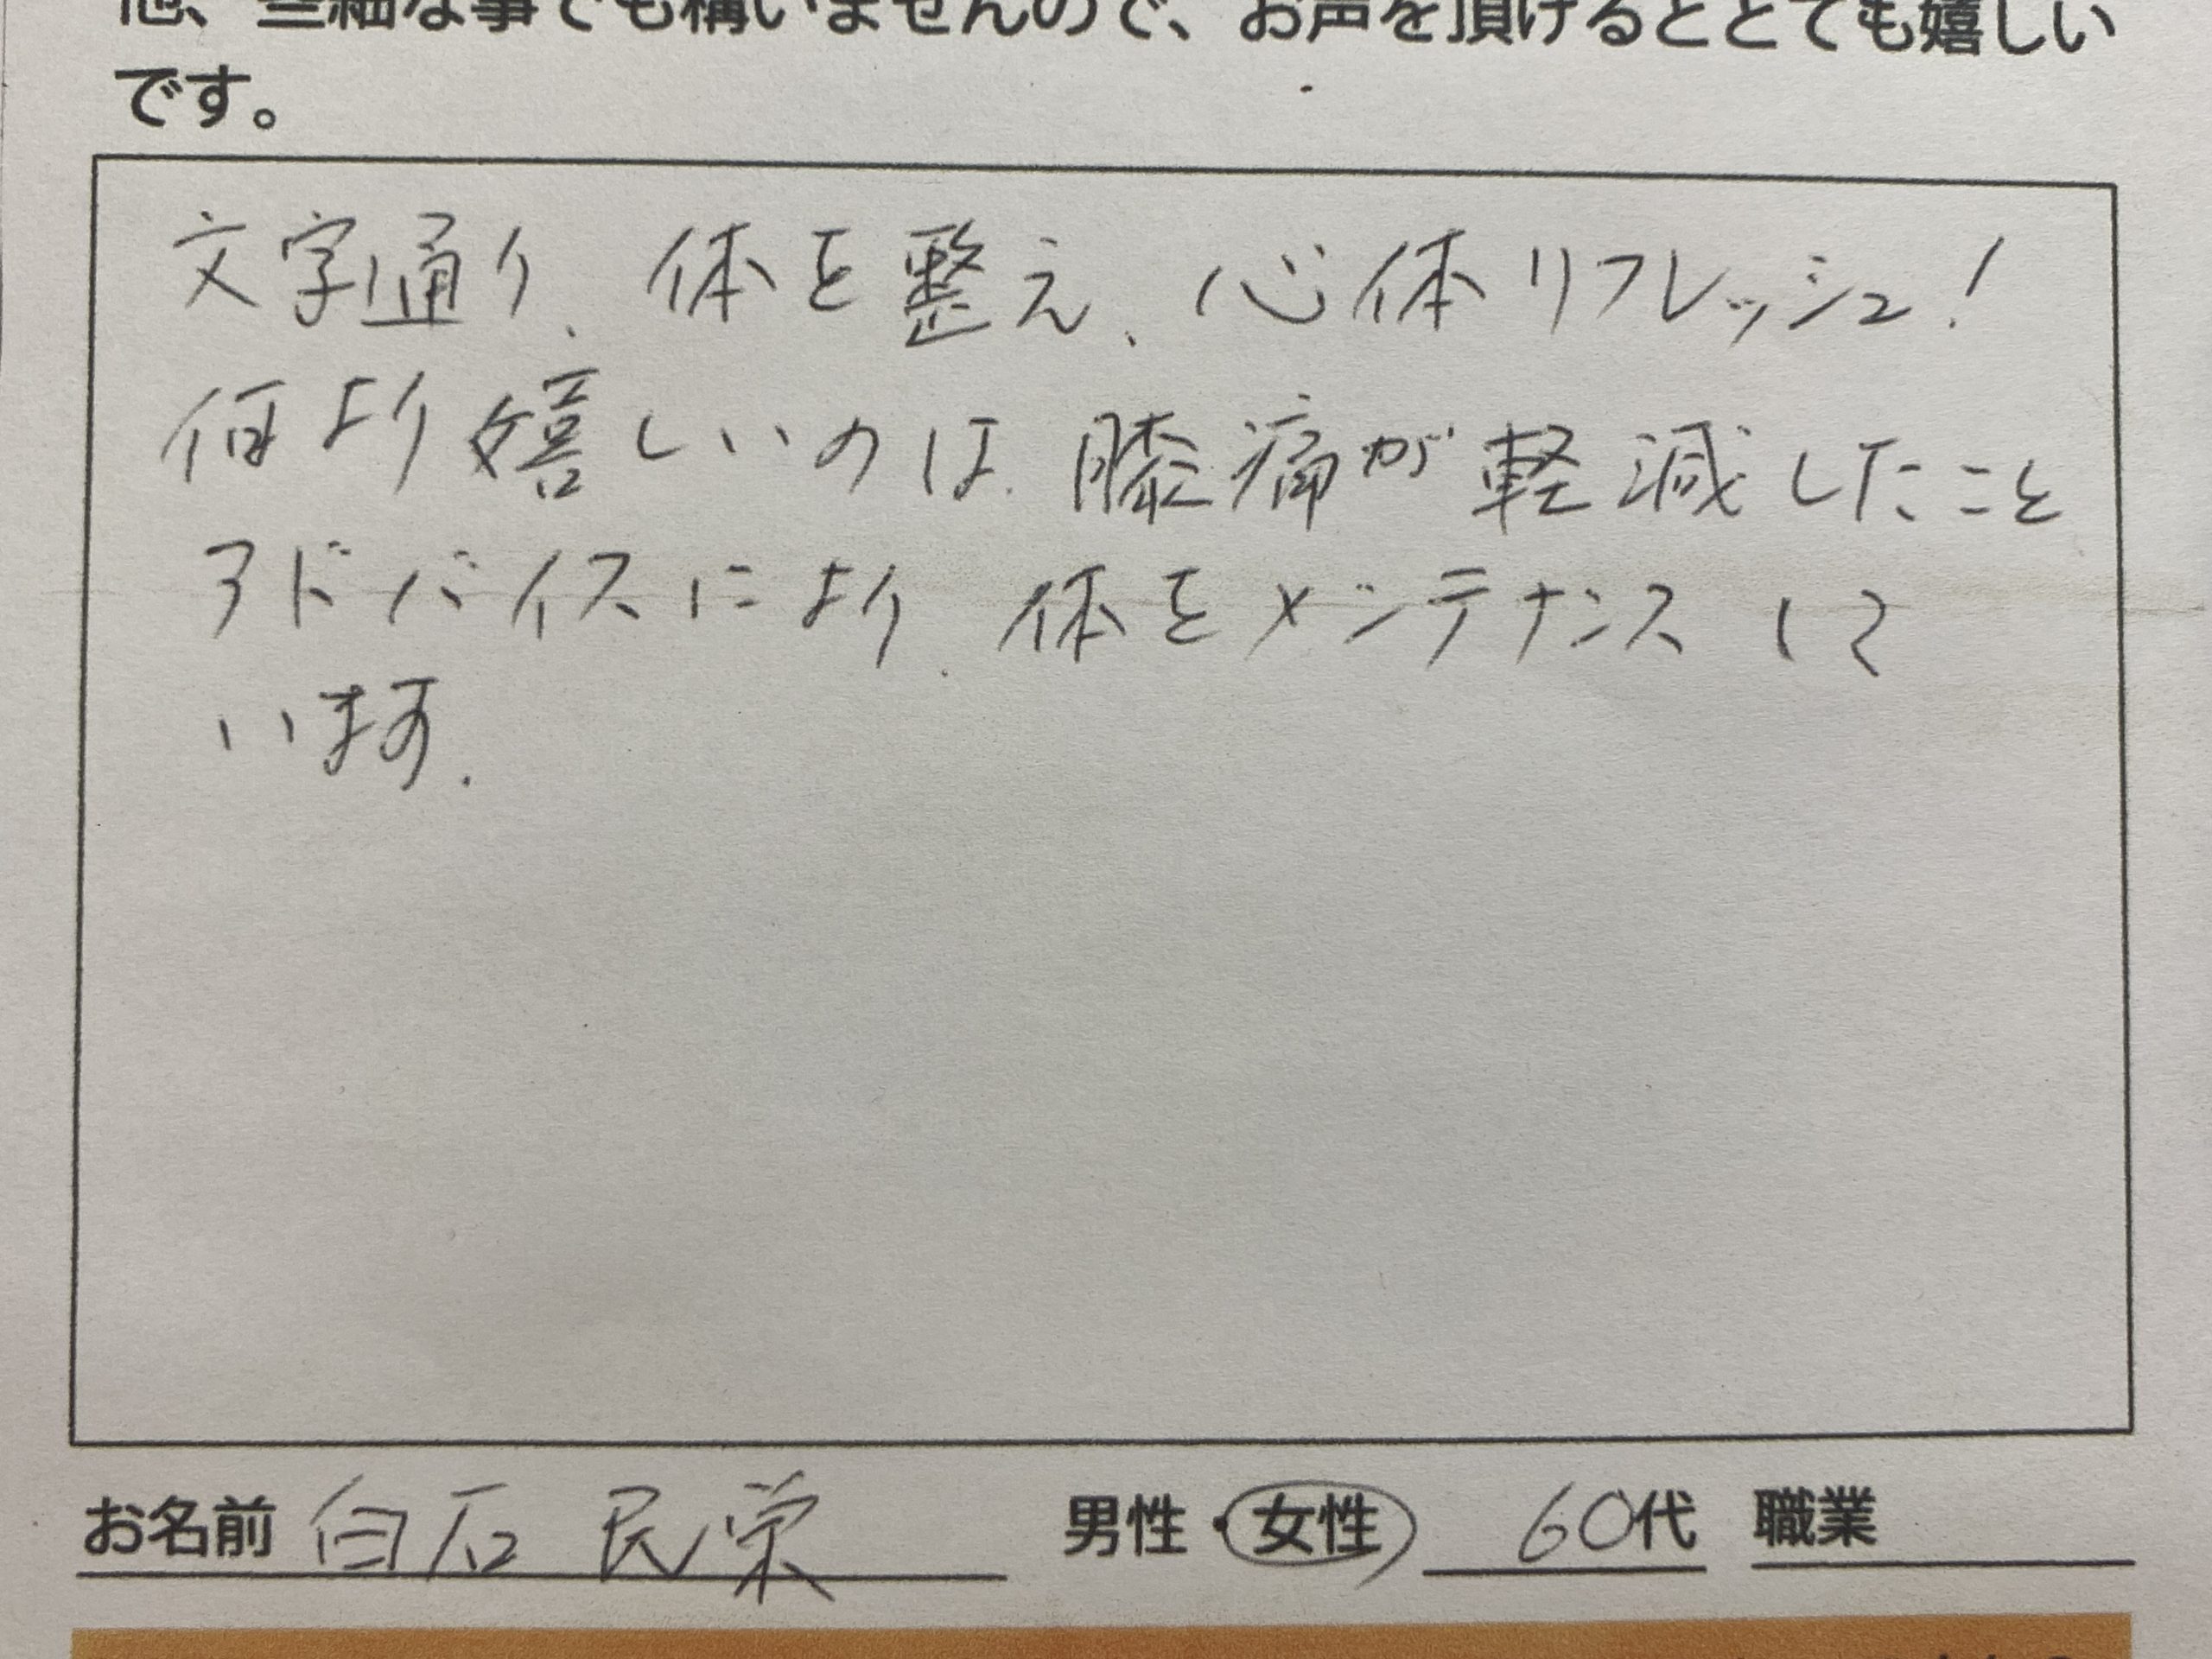 他、些細な事でも構いませんので、お声を頂けるととても嬉しい
です。
文字通り、体を整え、心体リフレッシュ!
何より嬉しいのは、膝痛が軽減したこと
アドバイスにより、体をメンテナンスして
います.
お名前 白石 民栄 男性・女性 60代 職業